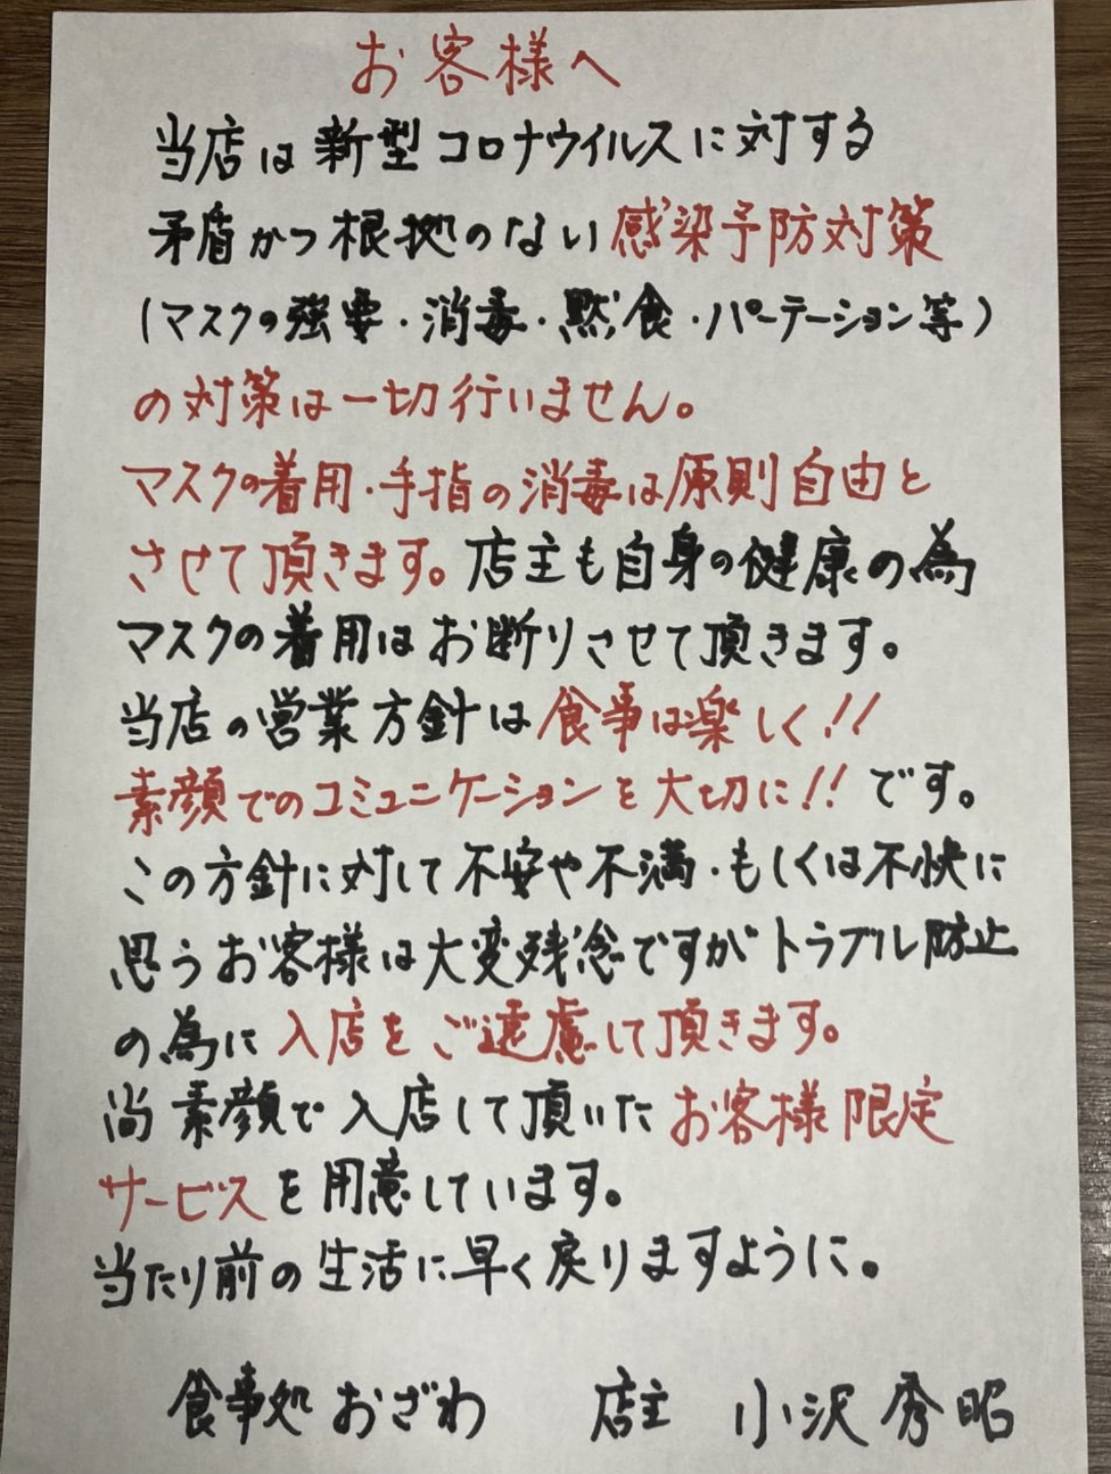 お客様へ
当店は新型コロナウイルスに対する
矛盾かつ根拠のない感染予防対策
(マスクの強要・消毒・黙食・パーテーション等)
の対策は一切行いません。
マスクの着用・手指の消毒は原則自由と
させて頂きます。店主も自身の健康の為
マスクの着用はお断りさせて頂きます。
当店の営業方針は食事は楽しく!!
素顔でのコミュニケーションを大切に!!です。
この方針に対して不安や不満・もしくは不快に
思うお客様は大変残念ですがトラブル防止
の為に入店をご遠慮して頂きます。
尚素顔で入店して頂いたお客様限定
サービスを用意しています。
当たり前の生活に早く戻りますように。
食事処おざわ 店主 小沢秀昭